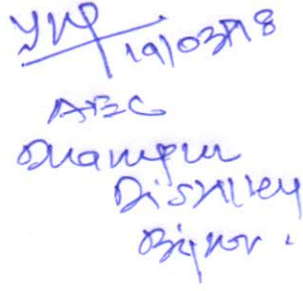 19/03/18
AEC
Dhampur
Distillery
Bijnor.